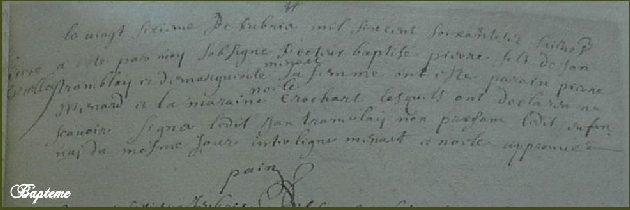 le vingt sixieme Febvrier mil sixcent soixante
a este par moy soubsigne Recteur baptisé pierre fils de Jan
tramblay et de marguerite minart sa femme ont esté parain pierre
Menard et la maraine noele Crochart lesquels ont declarez ne
scavoire signer ledit Jan tramblay non present ledit enfan
nay du mesme jour interligne minart et noele approuvé
pain
Bapteme